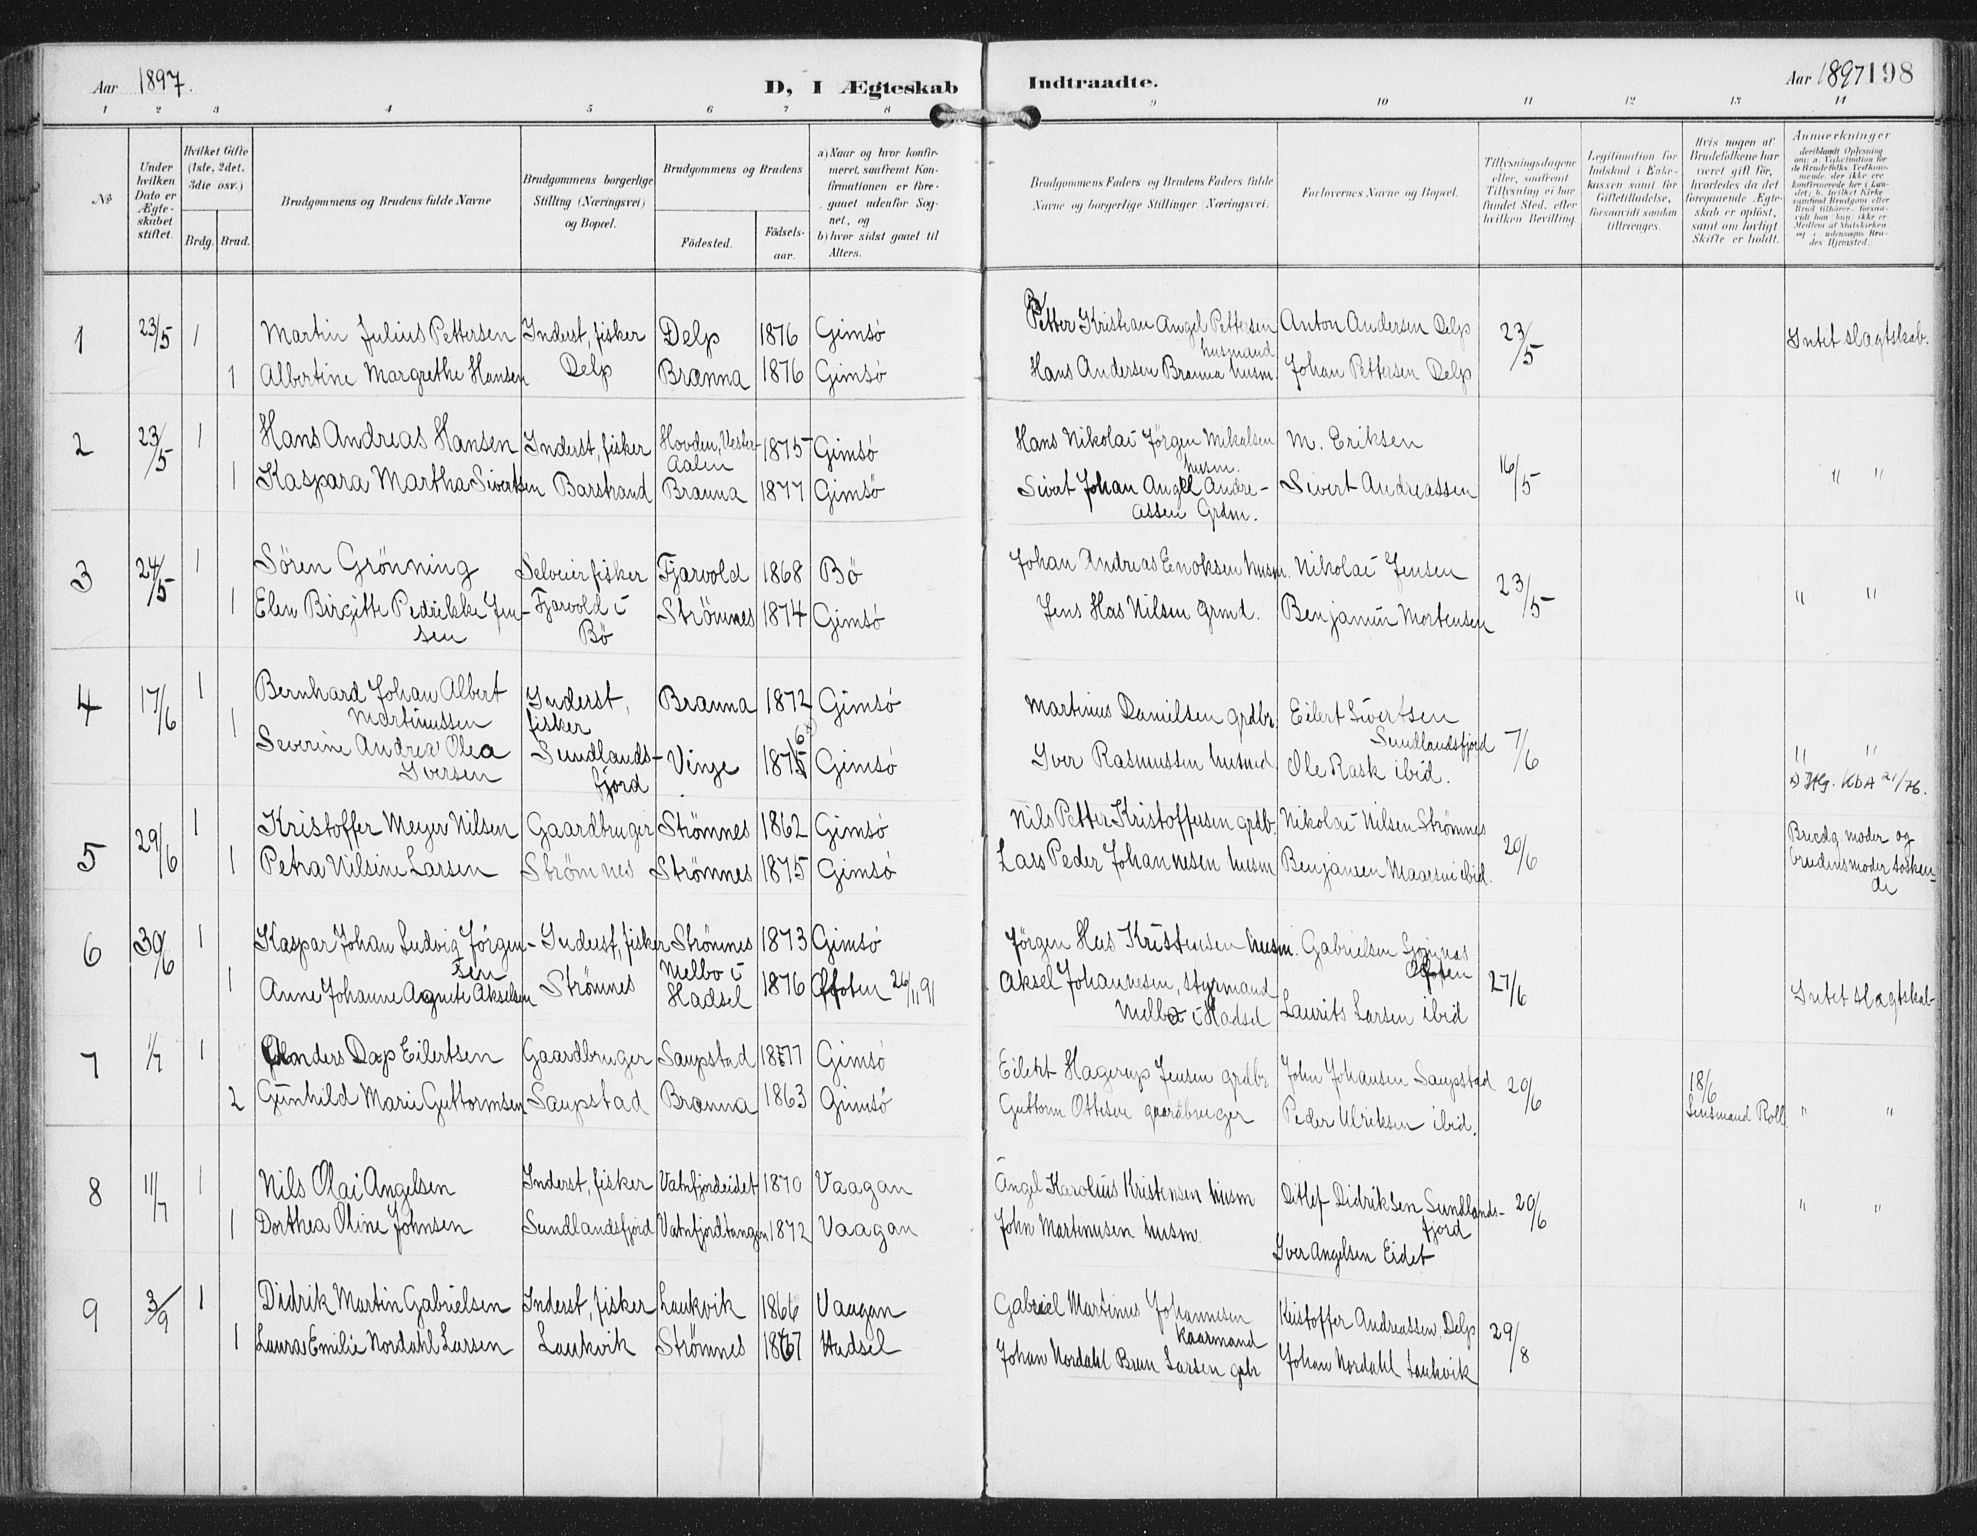 Aar 1897.
D, I Ægteskab
Indtraadte.
Aar 1897 198
1 2 3 4 5 6 7 8 9 10 11 12 13 14
No
Under hvilken Dato er Ægteskabet stiftet.
Hvilket Gifte (1ste, 2det, 3die osv.)
Brdg. Brud.
Brudgommens og Brudens fulde Navne
Brudgommens borgerlige Stilling (Næringsvei) og Bopæl.
Brudgommens og Brudens
Fødested. Fødselsaar.
a) Naar og hvor konfirmeret, saafremt Konfirmationen er foregaaet udenfor Sognet, og
b) hvor sidst gaaet til Alters.
Brudgommens Faders og Brudens Faders fulde Navne og borgerlige Stillinger (Næringsvei)
Forlovernes Navne og Bopæl.
Tillysningsdagene eller, saafremt Tillysning ei har fundet Sted, efter hvilken Bevilling.
Legitimation for Indskud i Enkekassen samt for Giftetilladelse, forsaavidt saadan tiltrænges.
Hvis nogen af Brudefolkene har været gift før, hvorledes da det foregaaende Ægteskab er opløst, samt om lovligt Skifte er holdt.
Anmerkninger
1 23/5 1 Martin Julius Pettersen Inderst, fisker Delp 1876 Gimsö Petter Kristian Angel Pettersen husmand Anton Andersen Delp 23/5 Intet slagtskab.
1 Albertine Margrethe Hansen Delp Brænna 1876 Gimsö Hans Andersen Brænna husm. Johan Pettersen Delp
2 23/5 1 Hans Andreas Hansen Inderst, fisker Hovden, Vesteraalen 1875 Gimsö Hans Nikolai Jörgen Mikalsen husm. M. Eriksen 16/5 " "
1 Kaspara Martha Sivertsen Barstrand Brænna 1877 Gimsö Sivert Johan Angel Andreassen Grdm. Sivert Andreassen
3 24/5 1 Sören Grönning Selveier fisker Fjærvold 1868 Bö Johan Andreas Enoksen husm. Nikolai Jensen 23/5 " "
1 Elen Birgitte Pedrikke Jensen Fjærvold i Bö Strömnes 1874 Gimsö Jens Has Nilsen grmd. Benjamin Mortensen
4 17/6 1 Bernhard Johan Albert Martinussen Inderst, fisker Brænna 1872 Gimsö Martinus Danielsen grdbr. Eilert Sivertsen Sundlandsfjord 7/6 " "
1 Severine Andrea Olea Iversen Sundlandsfjord Vinje 1875 6 Gimsö Iver Rasmussen husmd. Ole Rask ibid. KDA 21/76.
5 29/6 1 Kristoffer Meyer Nilsen Gaardbruger Strömnes 1862 Gimsö Nils Petter Kristoffersen grdb. Nikolai Nilsen Strömnes 20/6 Brudg. moder og brudens moder søskende
1 Petra Nilsine Larsen Strömnes Strömnes 1875 Gimsö Lars Peder Johannesen husm ibid.
6 30/6 1 Kaspar Johan Ludvig Jörgensen Inderst, fisker Strömnes 1873 Gimsö Jörgen Has Kristensen husm. Gabrielsen 27/6 Intet slagtskab
1 Anne Johanne Agnete Akselsen Strömnes Melbo i Hadsel 1876 Ofoten 26/11 91 Aksel Johannesen, styrmand Melbo i Hadsel Laurits Larsen ibid
7 1/7 1 Anders Dap Eilertsen Gaardbruger Saupstad 1877 Gimsö Eilert Hagerup Jensen grdbr John Johansen Saupstad 20/6 " "
2 Gunhild Marie Guttormsen Saupstad Brænna 1863 Gimsö Guttorm Ottesen gaardbruger Peder Ulriksen ibid. 18/6 Lensmand Roll
8 11/7 1 Nils Olai Angelsen Inderst, fisker Vatnfjordeidet 1870 Vaagan Angel Karolius Kristensen husm Ditlef Didriksen Sundlandsfjord 20/6 " "
1 Dorthea Oline Johnsen Sundlandsfjord Vatnfjordtangen 1872 Vaagan John Martinusen husm. Iver Angelsen Eidet
9 3/9 1 Didrik Martin Gabrielsen Inderst, fisker Laukvik 1866 Vaagan Gabriel Martinus Johannesen Kaarmand Kristoffer Andreassen, Delp 29/8
1 Laura Emilie Nordahl Larsen Laukvik Strömnes 1867 Hadsel Johan Nordahl Brun Larsen gbr Johan Nordahl Laukvik